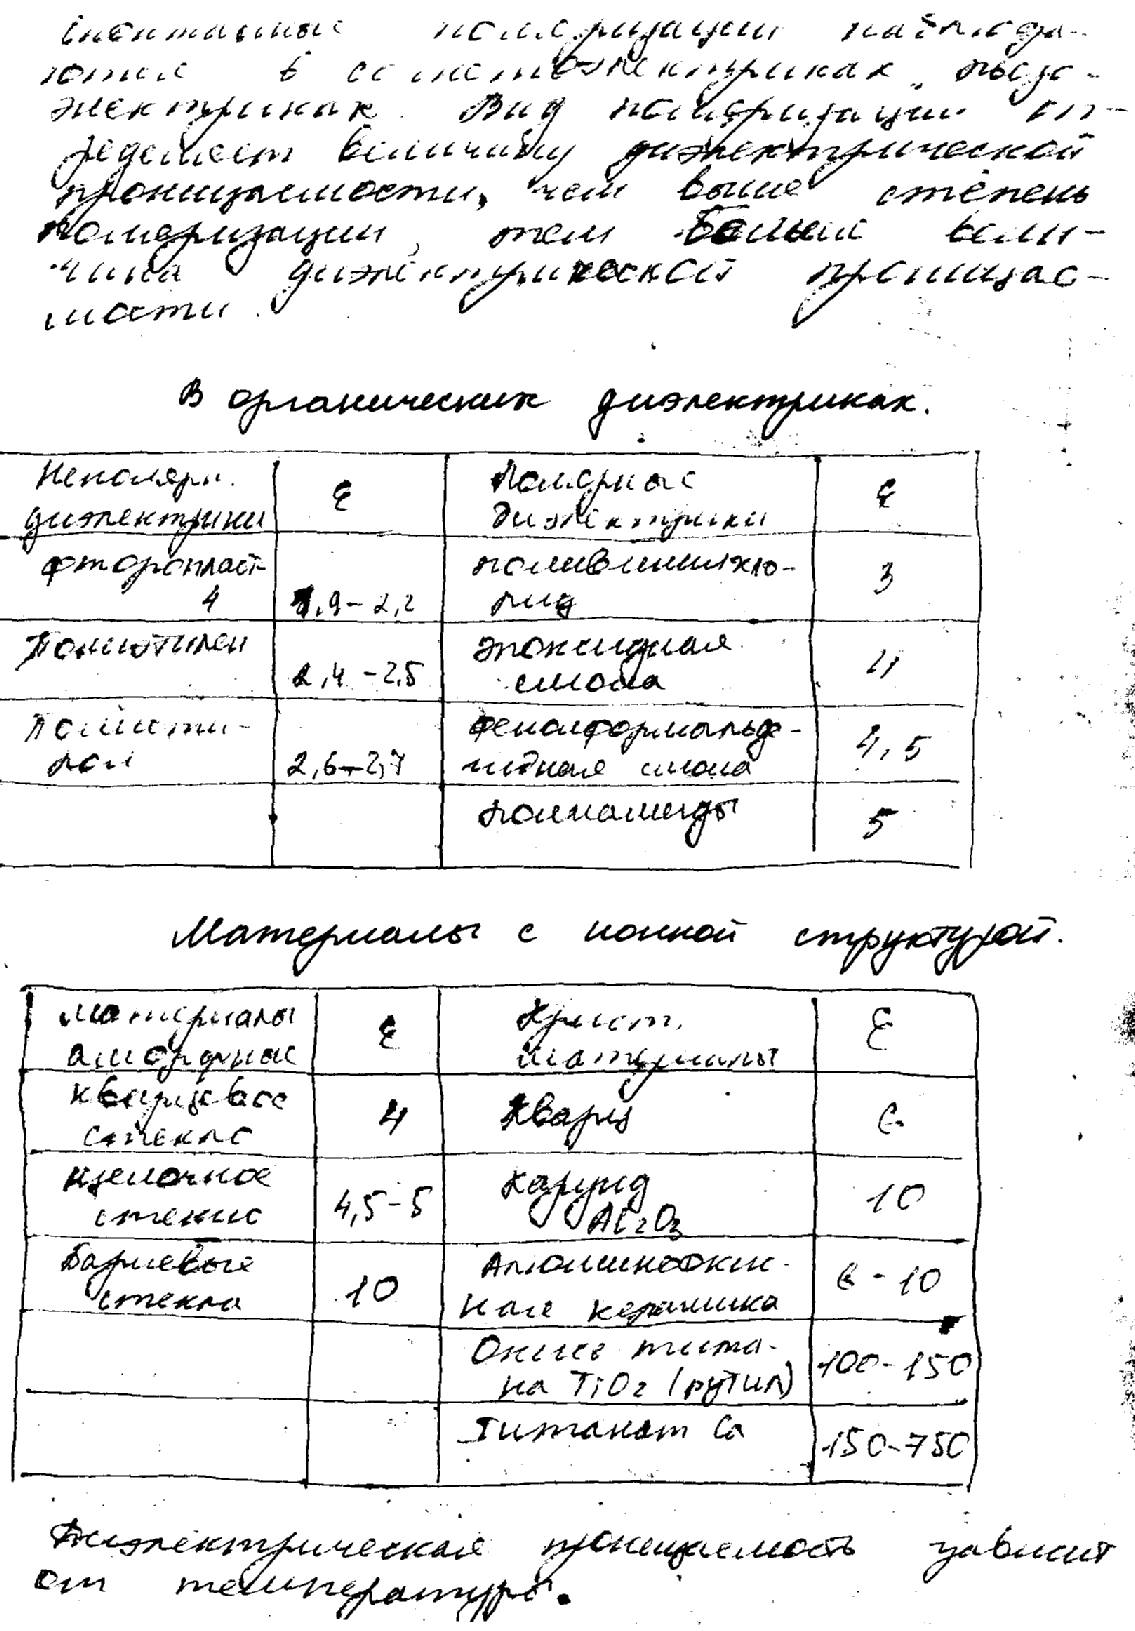 поляризации наблюда-
ются в сегнетоэлектриках, пьезо-
электриках. Вид поляризации оп-
ределяет величину диэлектрической
проницаемости, чем выше степень
поляризации, тем больше вели-
чина диэлектрической проницае-
мости.
В органических диэлектриках.
Неполярн. диэлектрики | ε | Полярные диэлектрики | ε
фторопласт-4 | 1,9-2,2 | поливинилхло-рид | 3
Полиэтилен | 2,4-2,5 | эпоксидная смола | 4
Полисти-рол | 2,6-2,7 | фенолформальде-гидная смола | 4,5
полиамиды | 5
Материалы с ионной структурой.
Материалы аморфные | ε | Крист. материалы | ε
кварцевое стекло | 4 | Кварц | 6
щелочное стекло | 4,5-5 | Корунд Al2O3 | 10
Бариевые стекла | 10 | Алюминоокис-ная керамика | 6-10
Окись тита-на TiO2 (рутил) | 100-150
Титанат Ca | 150-750
Диэлектрическая проницаемость зависит
от температуры.